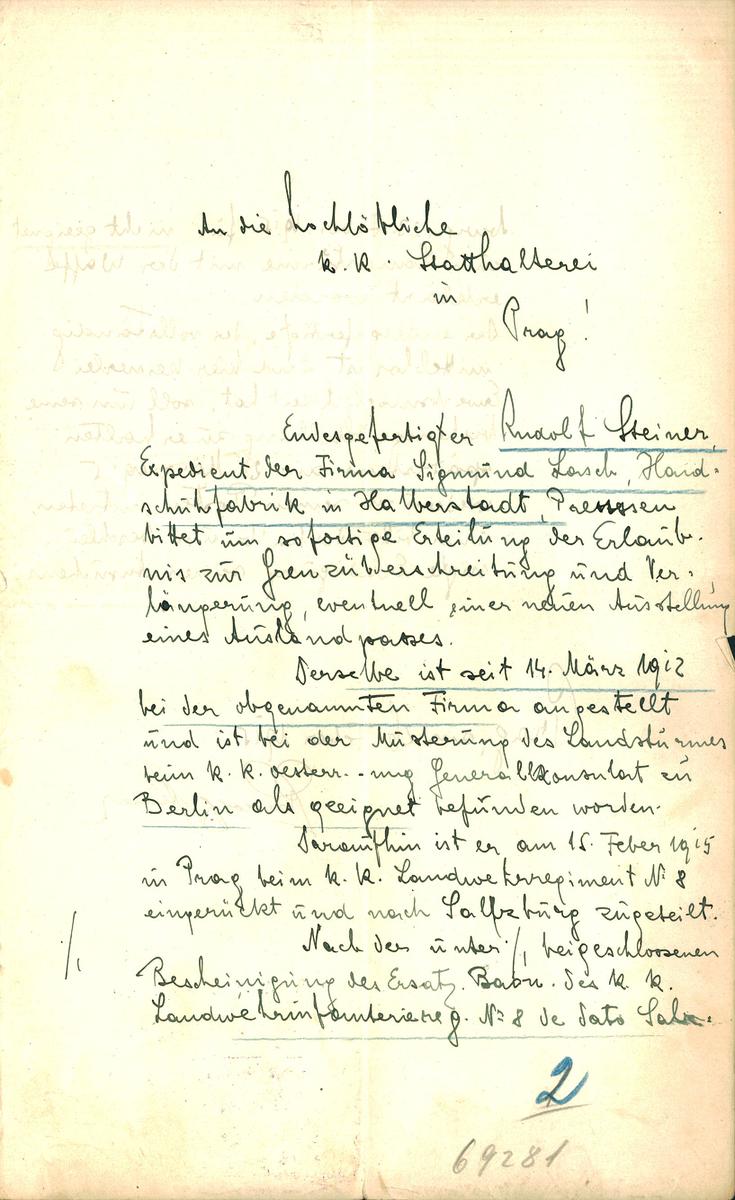 An die hochlöbliche
k. k. Statthalterei
in
Prag!
Endesgefertigter Rudolf Steiner,
Expedient der Firma Sigmund Lasch, Hand-
schuhfabrik in Halberstadt, Preussen
bittet um sofortige Erteilung der Erlaub-
nis zur Grenzüberschreitung und Ver-
längerung, eventuell einer neuen Ausstellung
eines Auslandpasses.
Derselbe ist seit 14. März 1912
bei der obgenannten Firma angestellt
und ist bei der Musterung des Landsturmes
beim k. k. oesterr. - ung Generalkonsulat zu
Berlin als geeignet befunden worden.
Daraufhin ist er am 15. Feber 1915
in Prag beim k. k. Landwehrregiment No 8
eingerückt und nach Salzburg zugeteilt.
Nach der unter ·/, beigeschlossenen
·/,
Bescheinigung des Ersatz. Baon. des k. k.
Landwehrinfanteriereg. No 8 de dato Salz-
2
69281